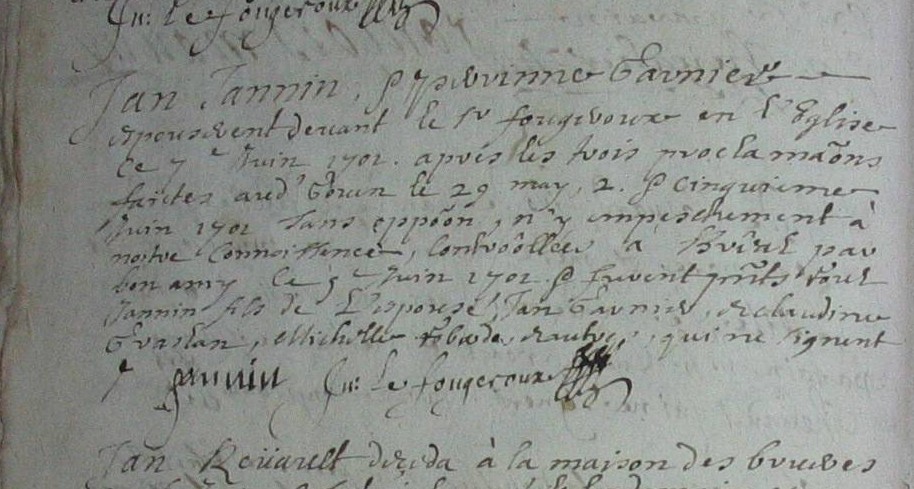 Jn: Le fougeroux
Jan Jannin, & perrinne Garnier
epouserent devant le Sr fougeroux en l'Eglise
ce 7e Juin 1702. après les trois proclamaõns
faictes aud' le 29 may, 2. & cinquieme
Juin 1702 sans oppõon, n'y empeschement à
nostre connoissence, controollees a par
bon amy le 5e Juin 1702. & furent pñts
Jannin fils de L'epousé, Jan Garnier, & claudine
Graslan, Michelle & autres, qui ne signent
Jannin Jn: Le fougeroux
Jan deceda à la maison des bruères